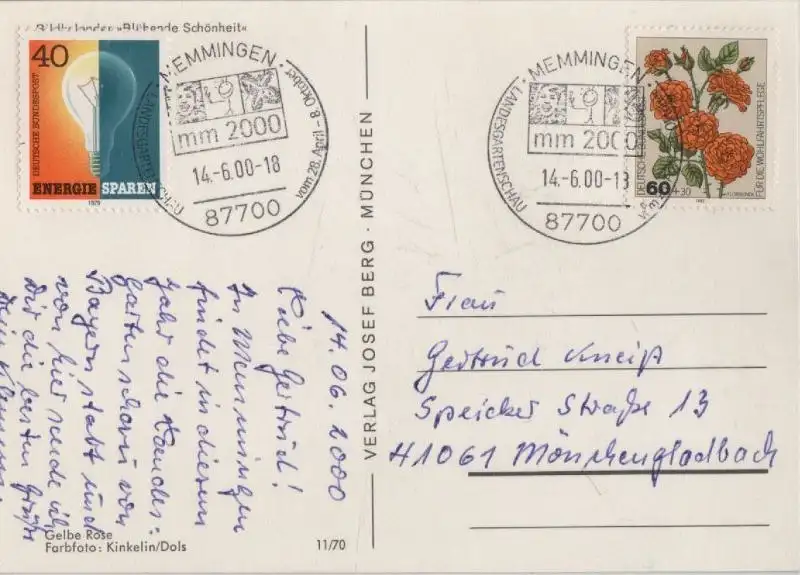 »Blühende Schönheit«
40
DEUTSCHE BUNDESPOST
ENERGIE SPAREN
1979
MEMMINGEN
mm 2000
14.-6.00-18
87700
LANDESGARTENSCHAU
vom 28. April - 8. Oktober
MEMMINGEN
mm 2000
14.-6.00-18
87700
LANDESGARTENSCHAU
60+30
FÜR DIE WOHLFAHRTSPFLEGE
VERLAG JOSEF BERG · MÜNCHEN
14.06.2000
Liebe Gertrud!
In Memmingen
findet in diesem
Jahr die Landes-
gartenschau von
Bayern statt und
von hier sende ich
Dir die besten Grüße
Dein
Frau
Gertrud Kneiß
Speicker Straße 13
41061 Mönchengladbach
Gelbe Rose
Farbfoto: Kinkelin/Dols
11/70